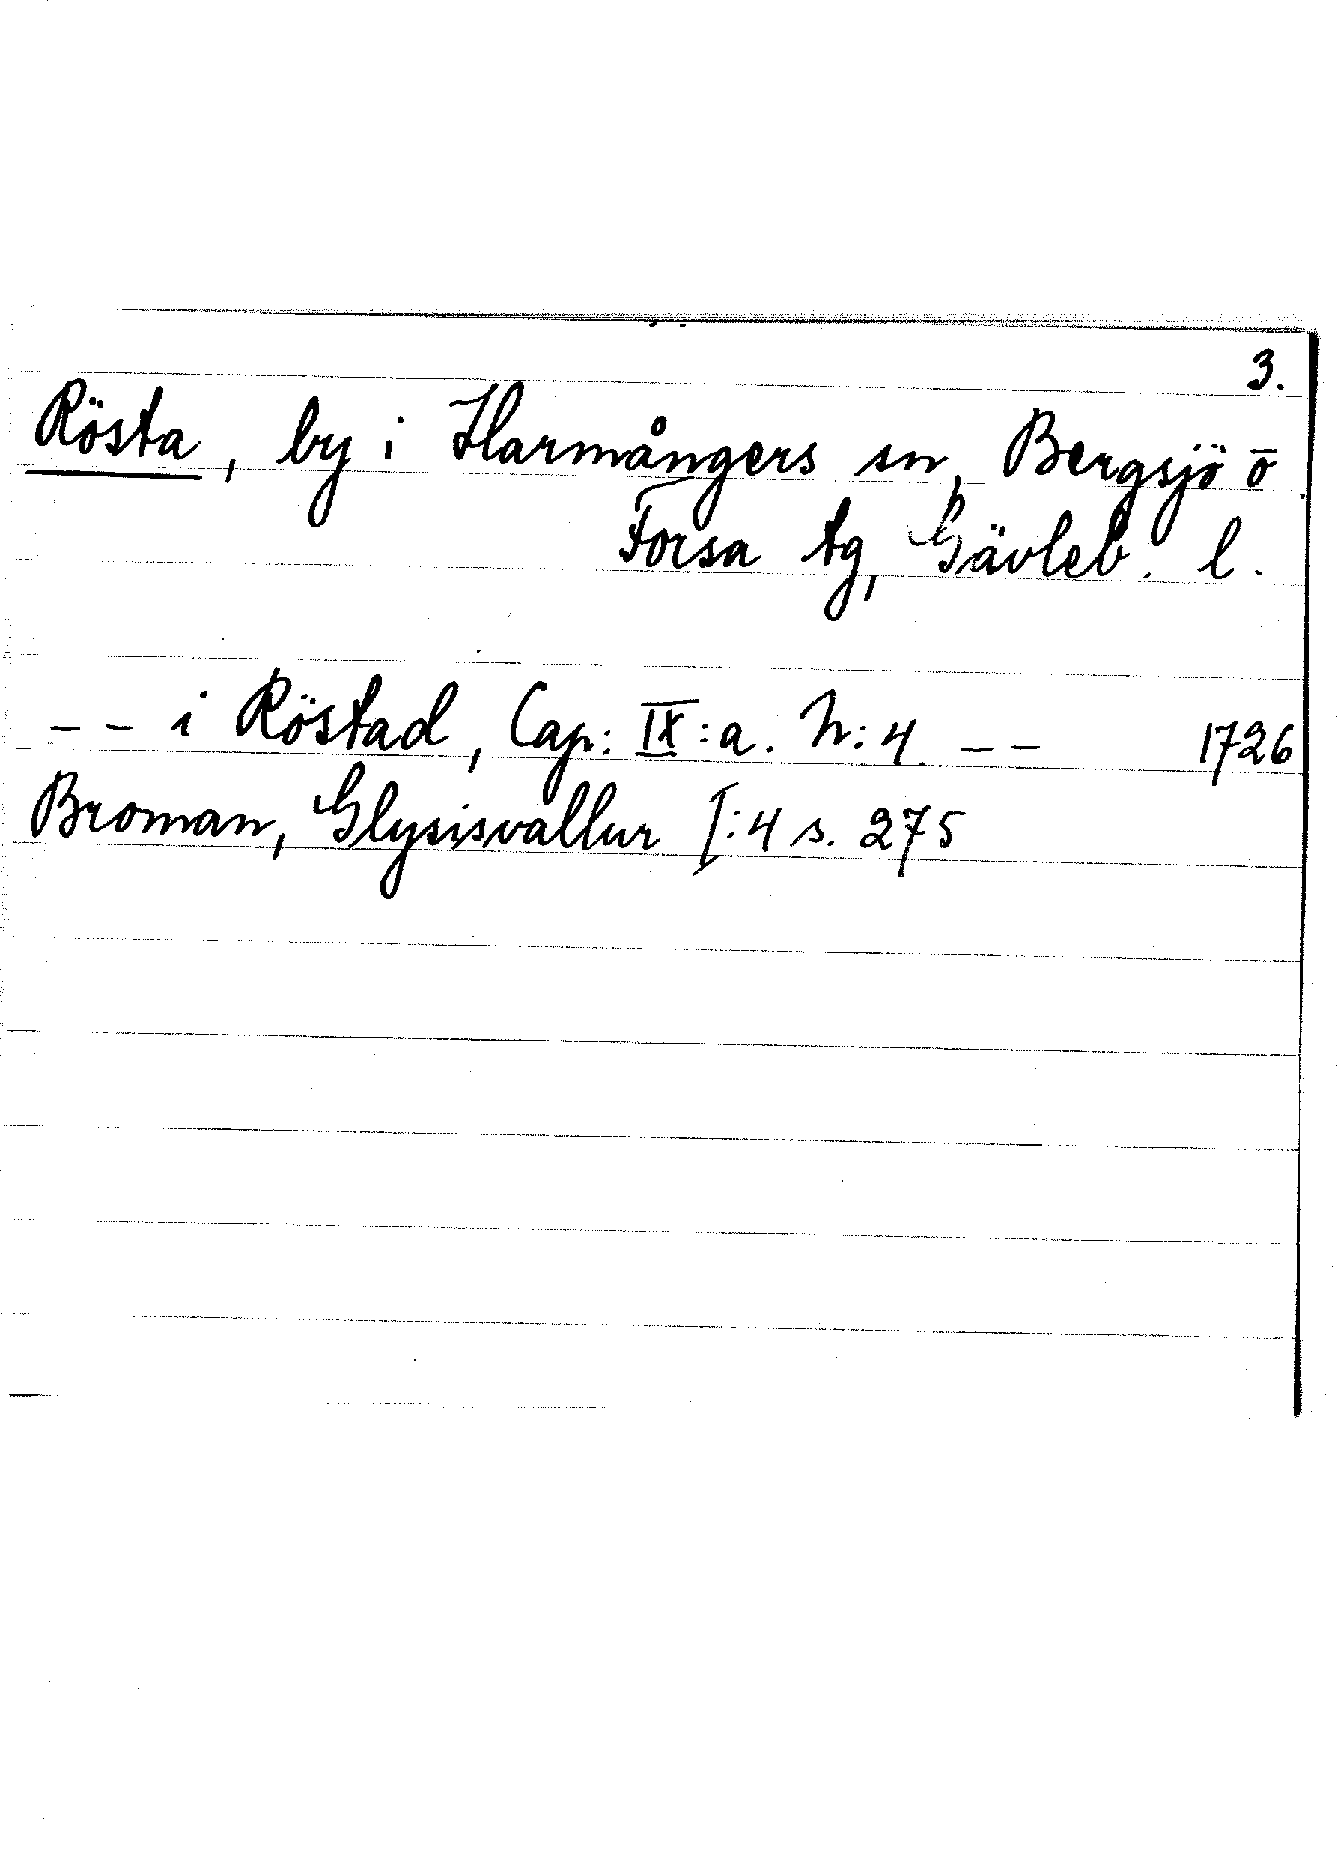 3.
Rösta, by i Harmångers sn, Bergsjö ō
Forsa tg, Gävleb. l.
-- i Röstad, Cap: IX:a. N:4 -- 1726
Broman, Glysisvallur I:4 s. 275